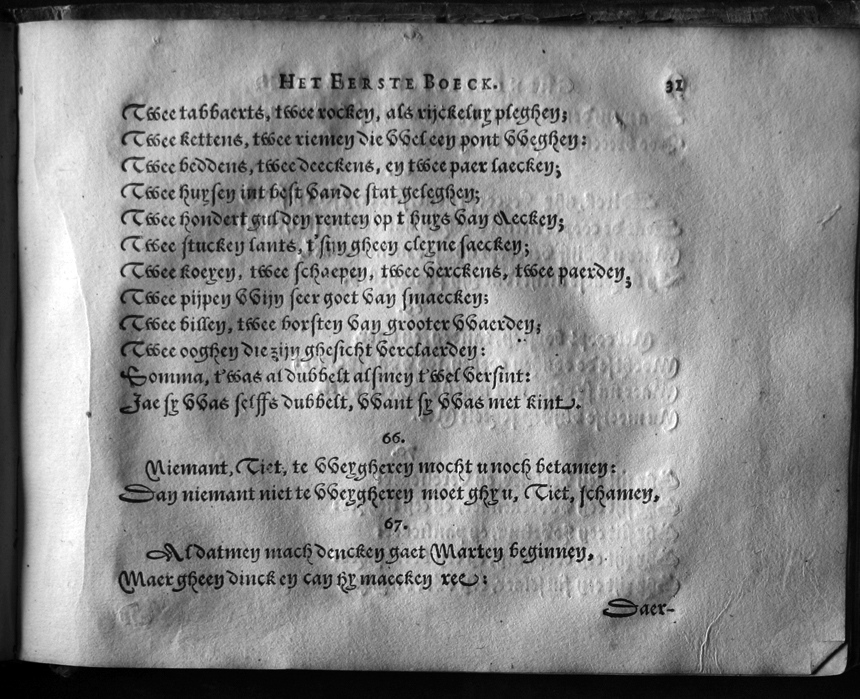 HET EERSTE BOECK. 31
Twee tabbaerts, twee rocken, als rijckeluy pleghen;
Twee kettens, twee riemen die VVel een pont VVeghen:
Twee beddens, twee deeckens, en twee paer laecken;
Twee huysen int best vande stat geleghen;
Twee hondert gulden renten op t'huys van Aecken;
Twee stucken lants, t'sijn gheen cleyne saecken;
Twee koeyen, twee schaepen, twee verckens, twee paerden;
Twee pijpen VVijn seer goet van smaecken;
Twee billen, twee borsten van grooter VVaerden;
Twee ooghen die zijn ghesicht verclaerden:
Somma, t'was al dubbelt alsmen t'wel versint:
Jae sy VVas selffs dubbelt, VVant sy VVas met kint.
66.
Niemant, Tiet, te VVeygheren mocht u noch betamen:
Dan niemant niet te VVeygheren moet ghy u, Tiet, schamen.
67.
Al datmen mach dencken gaet Marten beginnen,
Maer gheen dinck en can hy maecken ree:
Daer-